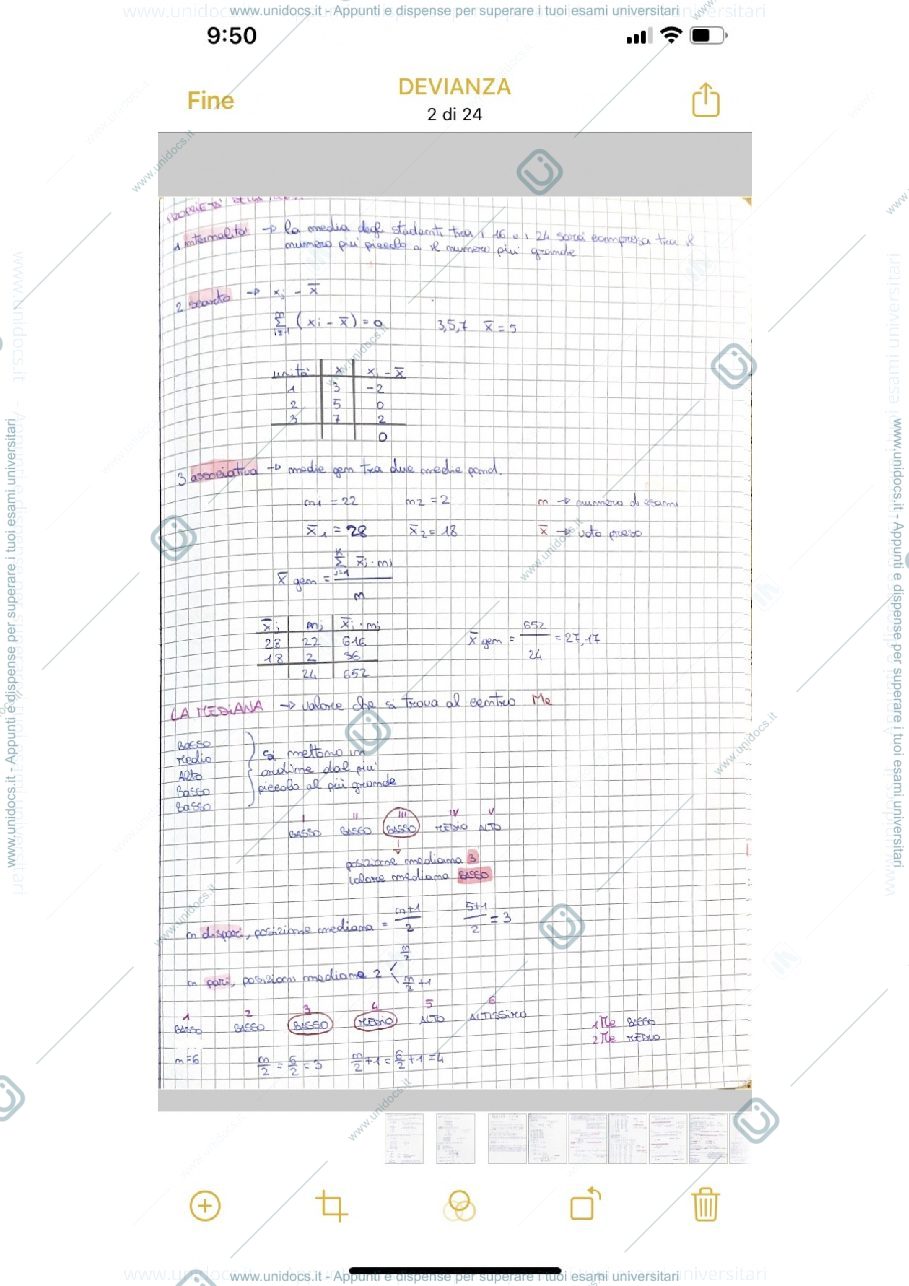 www.unidocs.it - Appunti e dispense per superare i tuoi esami universitari
9:50
Fine
DEVIANZA
2 di 24
1 internalità -> la media degli studenti tra i 16 e i 24 sarà compresa tra il
numero più piccolo e il numero più grande
2 scarto -> xi - x̄
n Σ i=1 (xi - x̄) = 0 3,5,7 x̄ = 5
unità x xi - x̄
1 3 -2
2 5 0
3 7 2
0
3 associativa -> media gen tra due medie pond.
n1 = 22 n2 = 2 n -> numero di esami
x̄1 = 28 x̄2 = 18 x̄ -> voto preso
x̄ gen = Σ x̄i · ni / n
x̄i ni x̄i · ni
28 22 616
18 2 36
24 652
x̄ gen = 652 / 24 = 27,17
LA MEDIANA -> valore che si trova al centro Me
Basso
Medio
Alto
Basso
Basso
si mettono in
ordine dal più
piccolo al più grande
I II III IV V
BASSO BASSO BASSO MEDIO ALTO
posizione mediana 3
valore mediana BASSO
n dispari, posizione mediana = n+1 / 2 5+1 / 2 = 3
n pari, posizioni mediane 2 n/2 n/2 +1
1 2 3 4 5 6
BASSO BASSO BASSO MEDIO ALTO ALTISSIMO
1 Me BASSO
2 Me MEDIO
n=6 n/2 = 6/2 = 3 n/2 +1 = 6/2 +1 = 4
www.unidocs.it - Appunti e dispense per superare i tuoi esami universitari